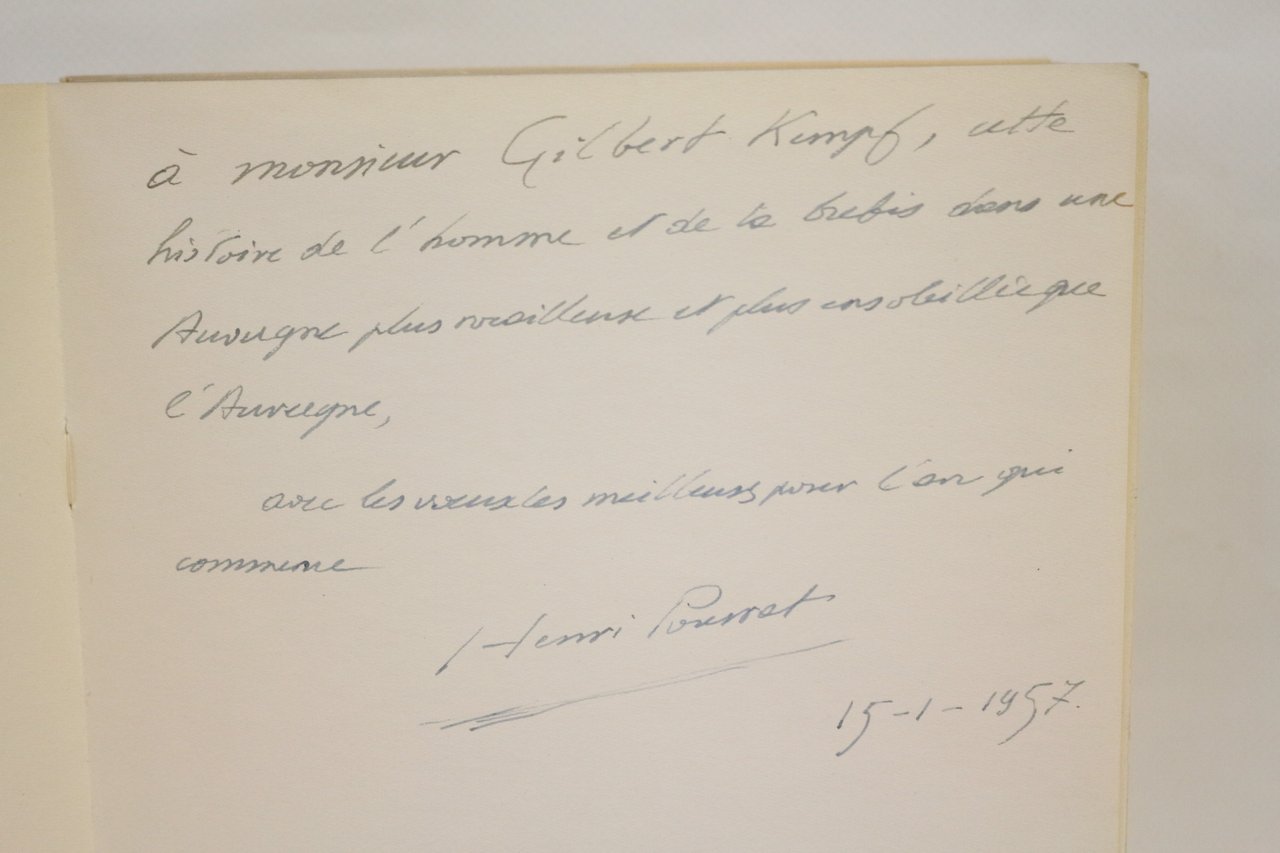 à monsieur Gilbert Kempf, cette
histoire de l'homme et de la brebis dans une
Auvergne plus merveilleuse et plus ensoleillée que
l'Auvergne,
avec les vœux les meilleurs pour l'an qui
commence
Henri Pourrat
15-1-1957.